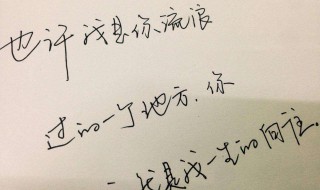 也许我是你流浪
过的一个地方.你
一定是我一生的向往.